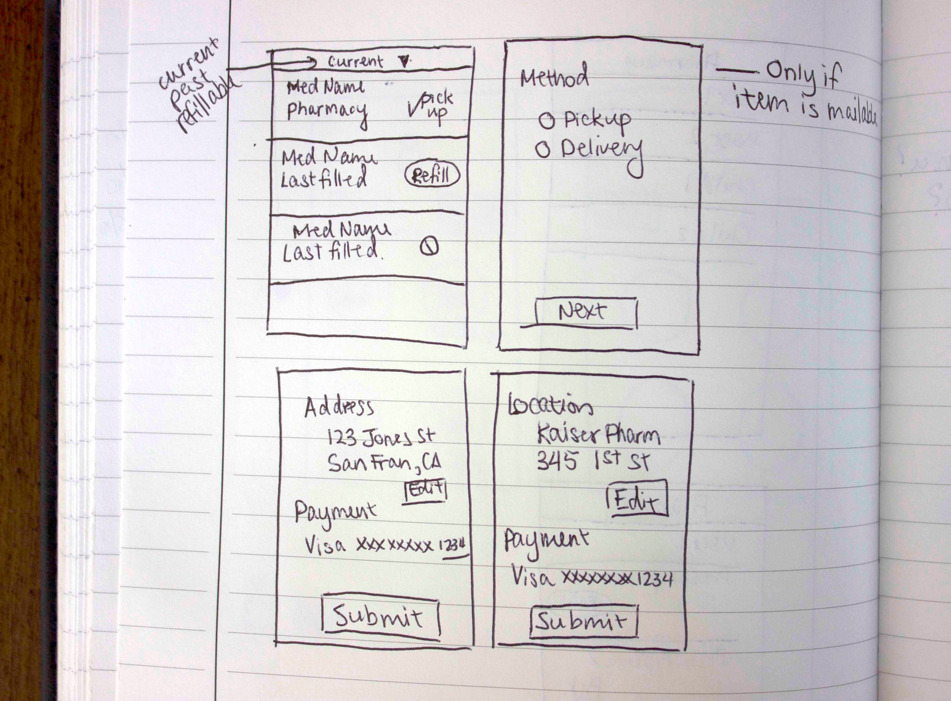 current
past
refillable
Current
Med Name
Pharmacy
pick
up
Med Name
Last filled
Refill
Med Name
Last filled.
Method
Pickup
Delivery
Next
Only if
item is mailable
Address
123 Jones St
San Fran, CA
Edit
Payment
Visa xxxxxxxxx 1234
Submit
Location
Kaiser Pharm
345 1st St
Edit
Payment
Visa xxxxxxxx1234
Submit